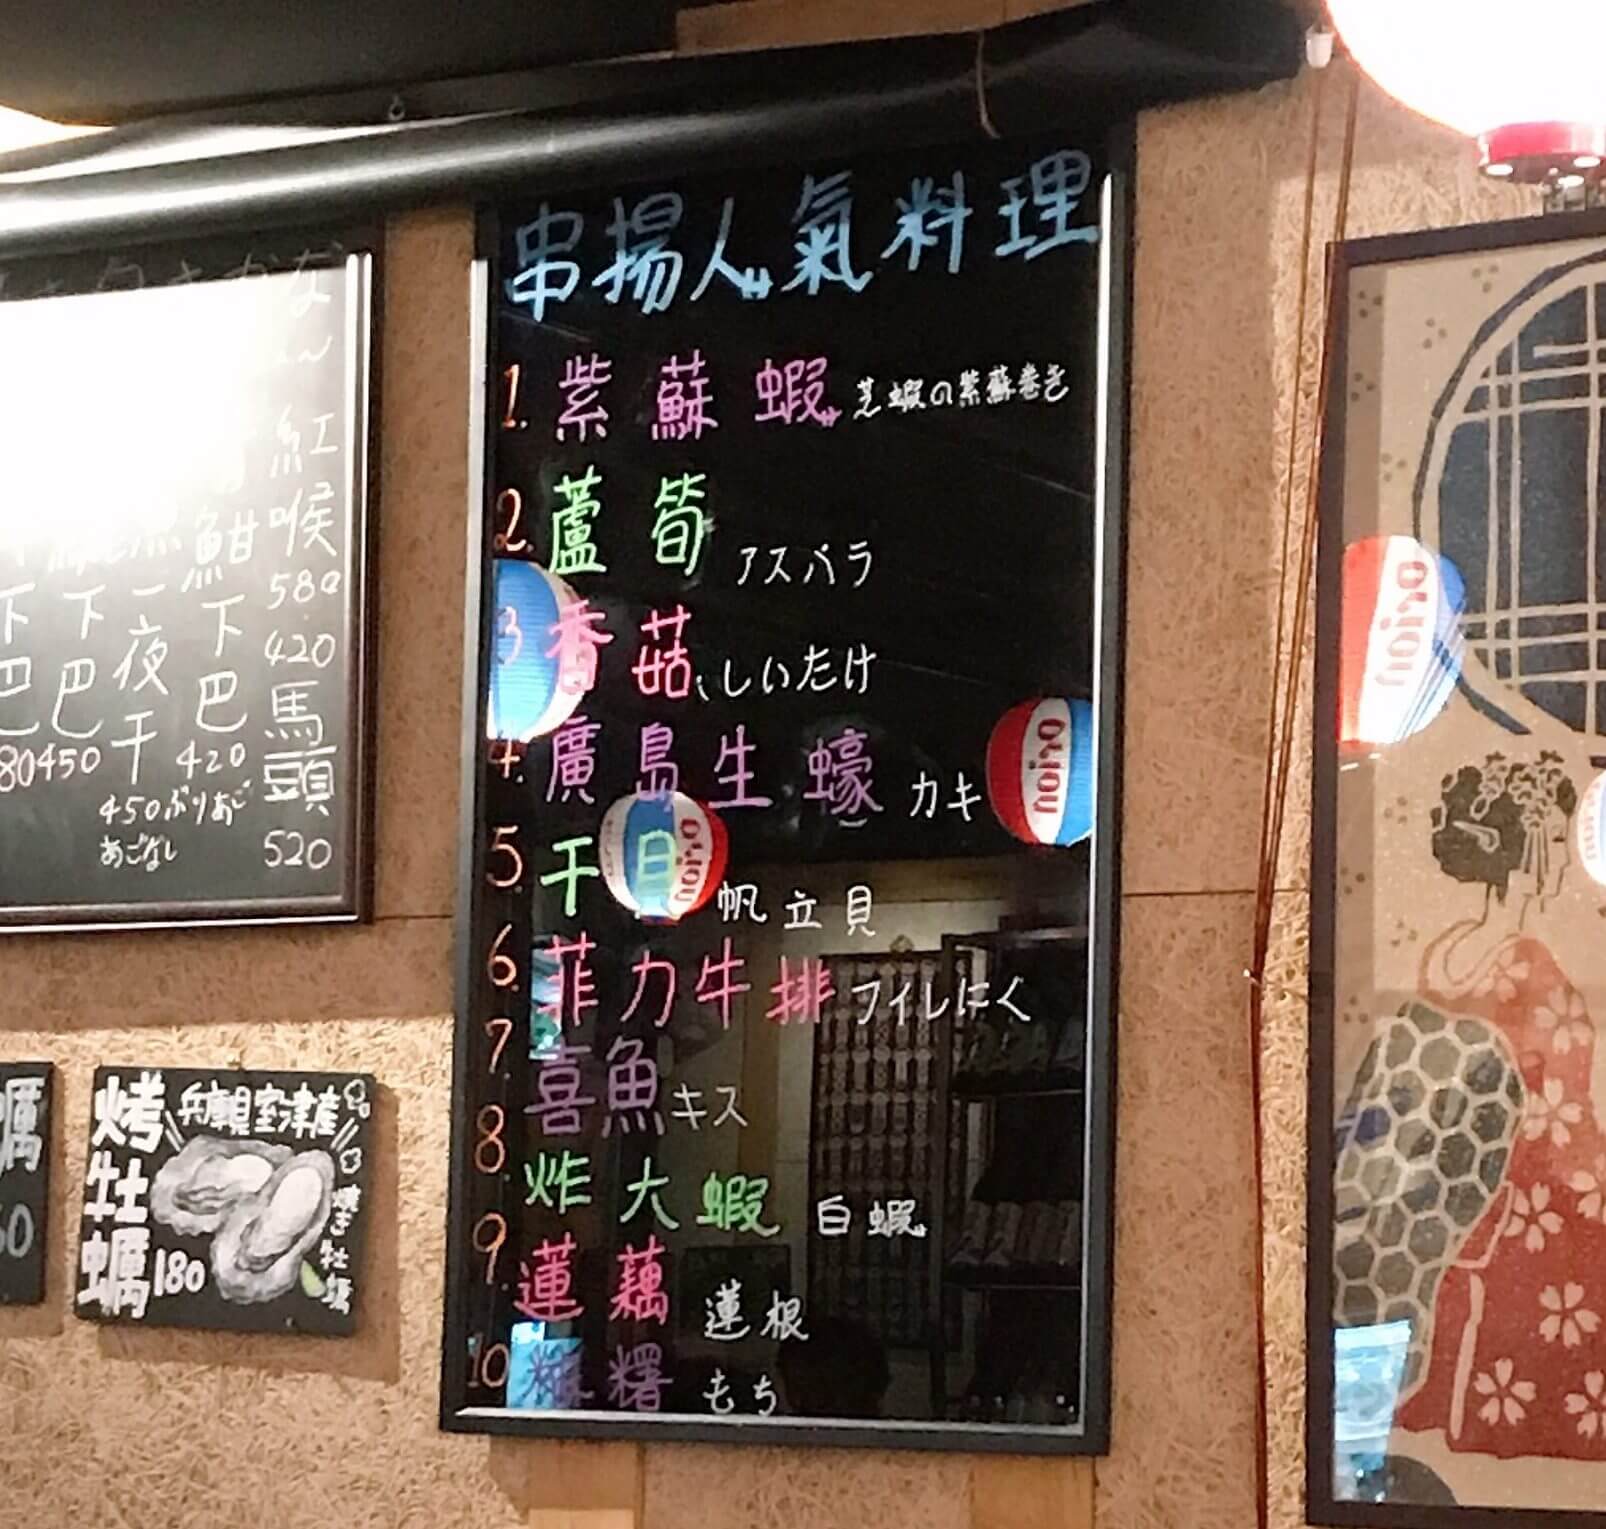 串揚人氣料理
1. 紫蘇蝦 芝蝦の紫蘇巻き
2. 蘆筍 アスパラ
3 香菇 しいたけ
4. 廣島生蠔 カキ
5. 干貝 帆立貝
6. 菲力牛排 フイレにく
7. 喜魚 キス
8. 炸大蝦 白蝦
9. 蓮藕 蓮根
10 麻糬 もち
紅喉 580
420
馬頭 520
魽下巴 420 ぶりあご
一夜干 450
下巴 450
下巴 80
烤牡蠣 180
兵庫県室津産
焼き牡蠣
蠣
60